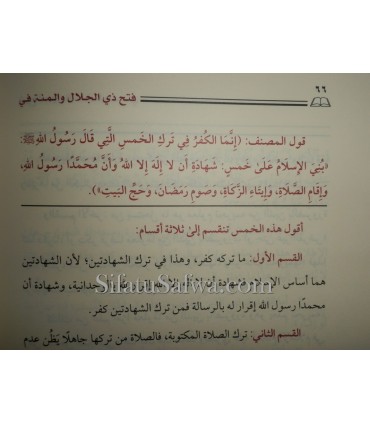 ٦٦
فتح ذي الجلال والمنة في
قول المصنف: (إِنَّمَا الكُفْرُ فِي تَركِ الخَمسِ الَّتِي قَالَ رَسُولُ اللهِ ﷺ:
«بُنِيَ الإِسلَامُ عَلَىٰ خَمسٍ: شَهَادَةِ أَن لا إِلَهَ إِلا اللهُ وَأَنَّ مُحَمَّدًا رَسُولُ اللهِ،
وَإِقَامِ الصَّلَاةِ، وَإِيتَاءِ الزَّكَاةِ، وَصَومِ رَمَضَانَ، وَحَجِّ البَيتِ»).
أقول هذه الخمس تنقسم إلى ثلاثة أقسام:
القسم الأول: ما تركه كفر، وهذا في ترك الشهادتين؛ لأن الشهادتين
هما أساس الإسلام فشهادة أن لا إله إلا الله إقرار لله بالوحدانية، وشهادة أن
محمدًا رسول الله إقرار له بالرسالة فمن ترك الشهادتين كفر.
القسم الثاني: ترك الصلاة المكتوبة، فالصلاة من تركها جاهلًا يَظُن عدم
Sifatusafwa.com